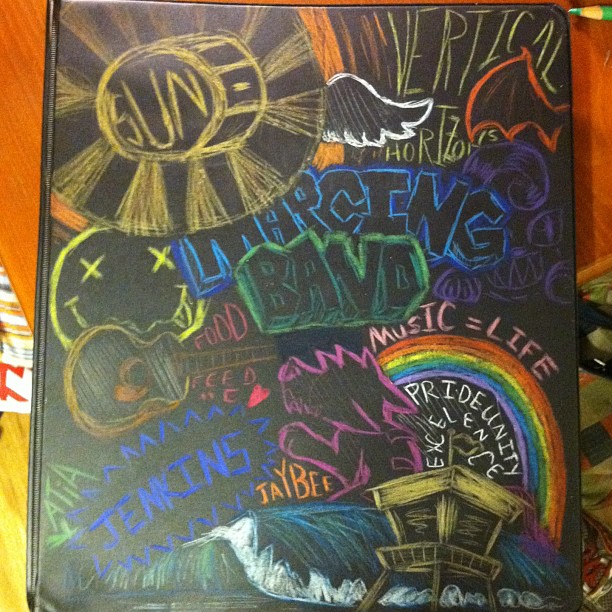 GUN
VERTICAL
HORIZONS
MARCING
BAND
FOOD
FEED
ME
MUSIC = LIFE
PRIDE UNITY
EXCELENCE
KATIA
JENKINS
JAYBEE